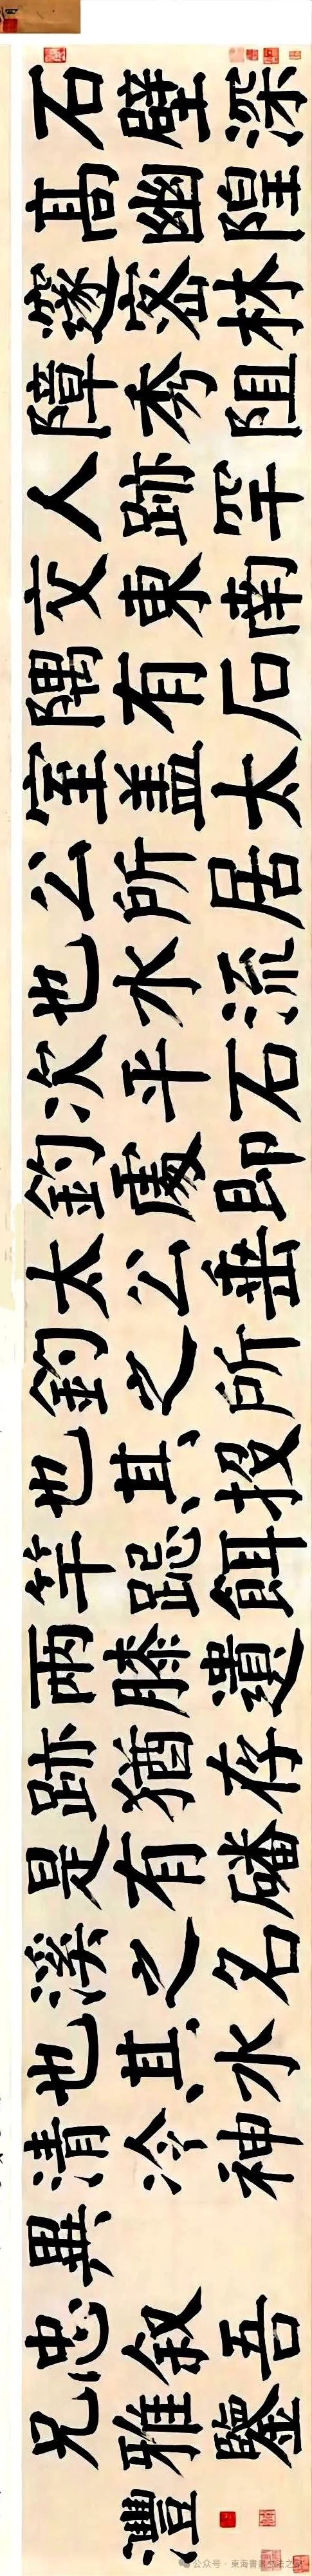 石壁深
髙幽隍
邃密林
障秀阻
人跡罕
交東南
隅有石
室盖太
公所居
也水流
次平石
釣處即
太公垂
釣之所
也其投
竿跽餌
兩膝遺
跡猶存
是有磻
溪之名
也其水
清泠神
異
忠叙吾
兄雅鑒
灃